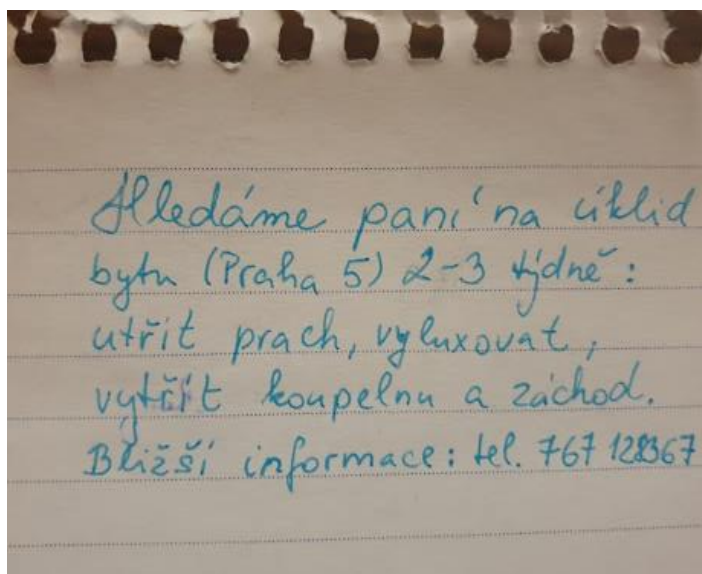 Hledáme paní na úklid
bytu (Praha 5) 2-3 týdně:
utřít prach, vyluxovat,
vytřít koupelnu a záchod.
Bližší informace: tel. 767 128367